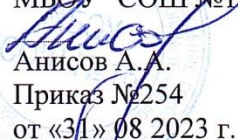 МБОУ "СОШ №1
Анисов А.А.
Приказ №254
от «31» 08 2023 г.